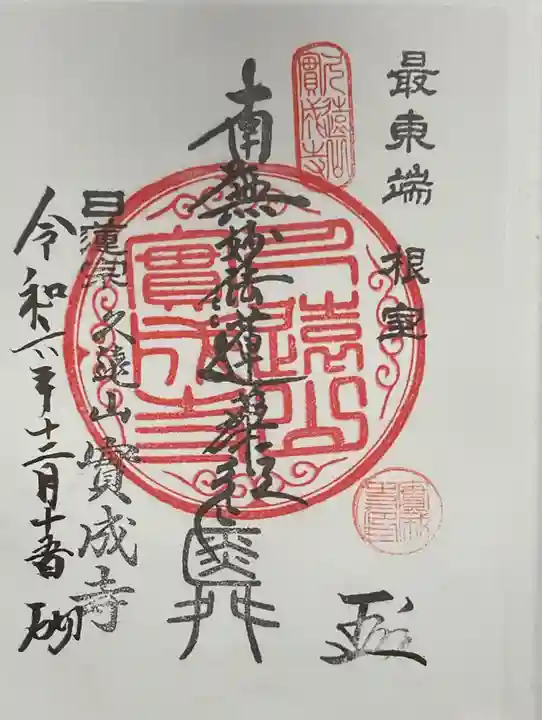 最東端 根室
久遠山
實成寺
南無妙法蓮華経
久遠山
實成寺
日蓮宗 久遠山 實成寺
令和六年十二月十五日